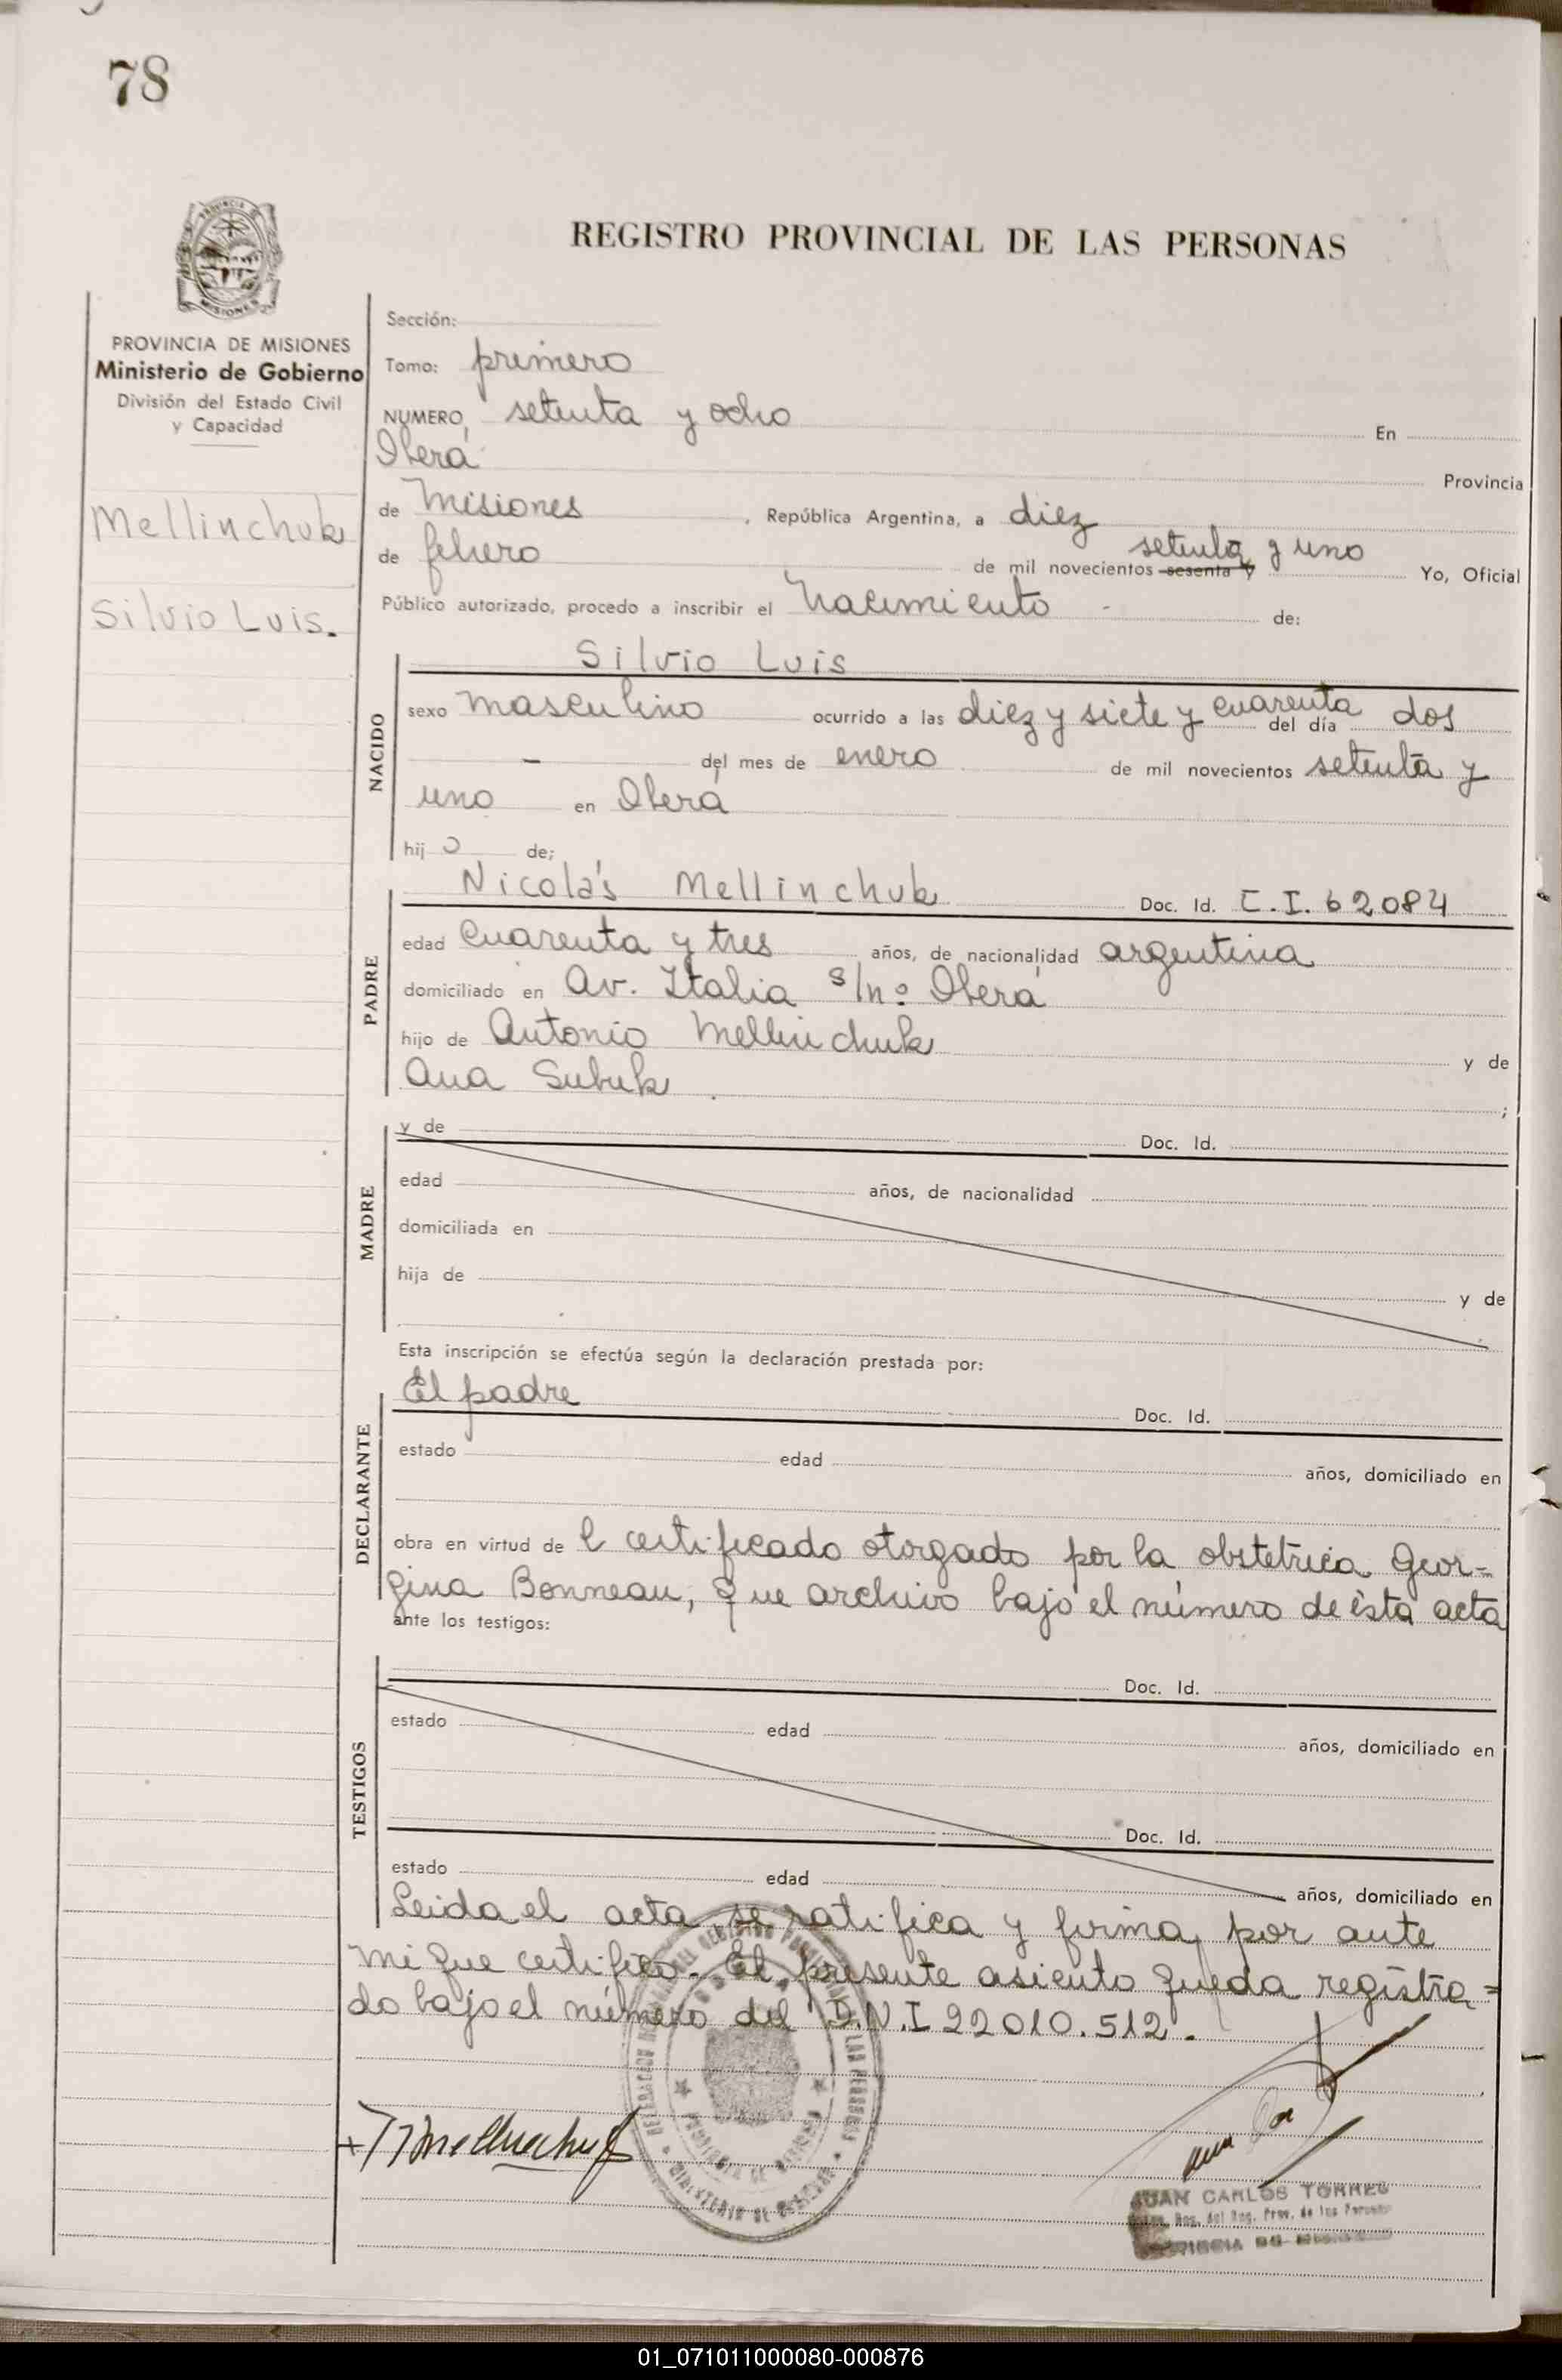 78
REGISTRO PROVINCIAL DE LAS PERSONAS
PROVINCIA DE MISIONES
Ministerio de Gobierno
División del Estado Civil
y Capacidad
Mellinchuk
Silvio Luis.
Sección:
Tomo: primero
NUMERO setenta y ocho En
Oberá Provincia
de Misiones, República Argentina, a diez
de febrero de mil novecientos sesenta y setenta y uno Yo, Oficial
Público autorizado, procedo a inscribir el Nacimiento - de:
NACIDO
Silvio Luis
sexo masculino ocurrido a las diez y siete y cuarenta del día dos
- del mes de enero de mil novecientos setenta y
uno en Oberá
hijo de;
PADRE
Nicolás Mellinchuk Doc. Id. C.I. 62084
edad cuarenta y tres años, de nacionalidad argentina
domiciliado en Av. Italia s/nº Oberá
hijo de Antonio Mellinchuk y de
Ana Subuk ;
MADRE
y de Doc. Id.
edad años, de nacionalidad
domiciliada en
hija de y de
Esta inscripción se efectúa según la declaración prestada por:
DECLARANTE
El padre Doc. Id.
estado edad años, domiciliado en
obra en virtud de l certificado otorgado por la obstetrica Geor-
gina Bonneau, que archivo bajo el número de ésta acta
ante los testigos:
TESTIGOS
Doc. Id.
estado edad años, domiciliado en
Doc. Id.
estado edad años, domiciliado en
Leida el acta, se ratifica y firma, por ante
mi que certifico. El presente asiento queda registra=
do bajo el número del D.N.I 22010.512.
JUAN CARLOS TORRES
01_071011000080-000876